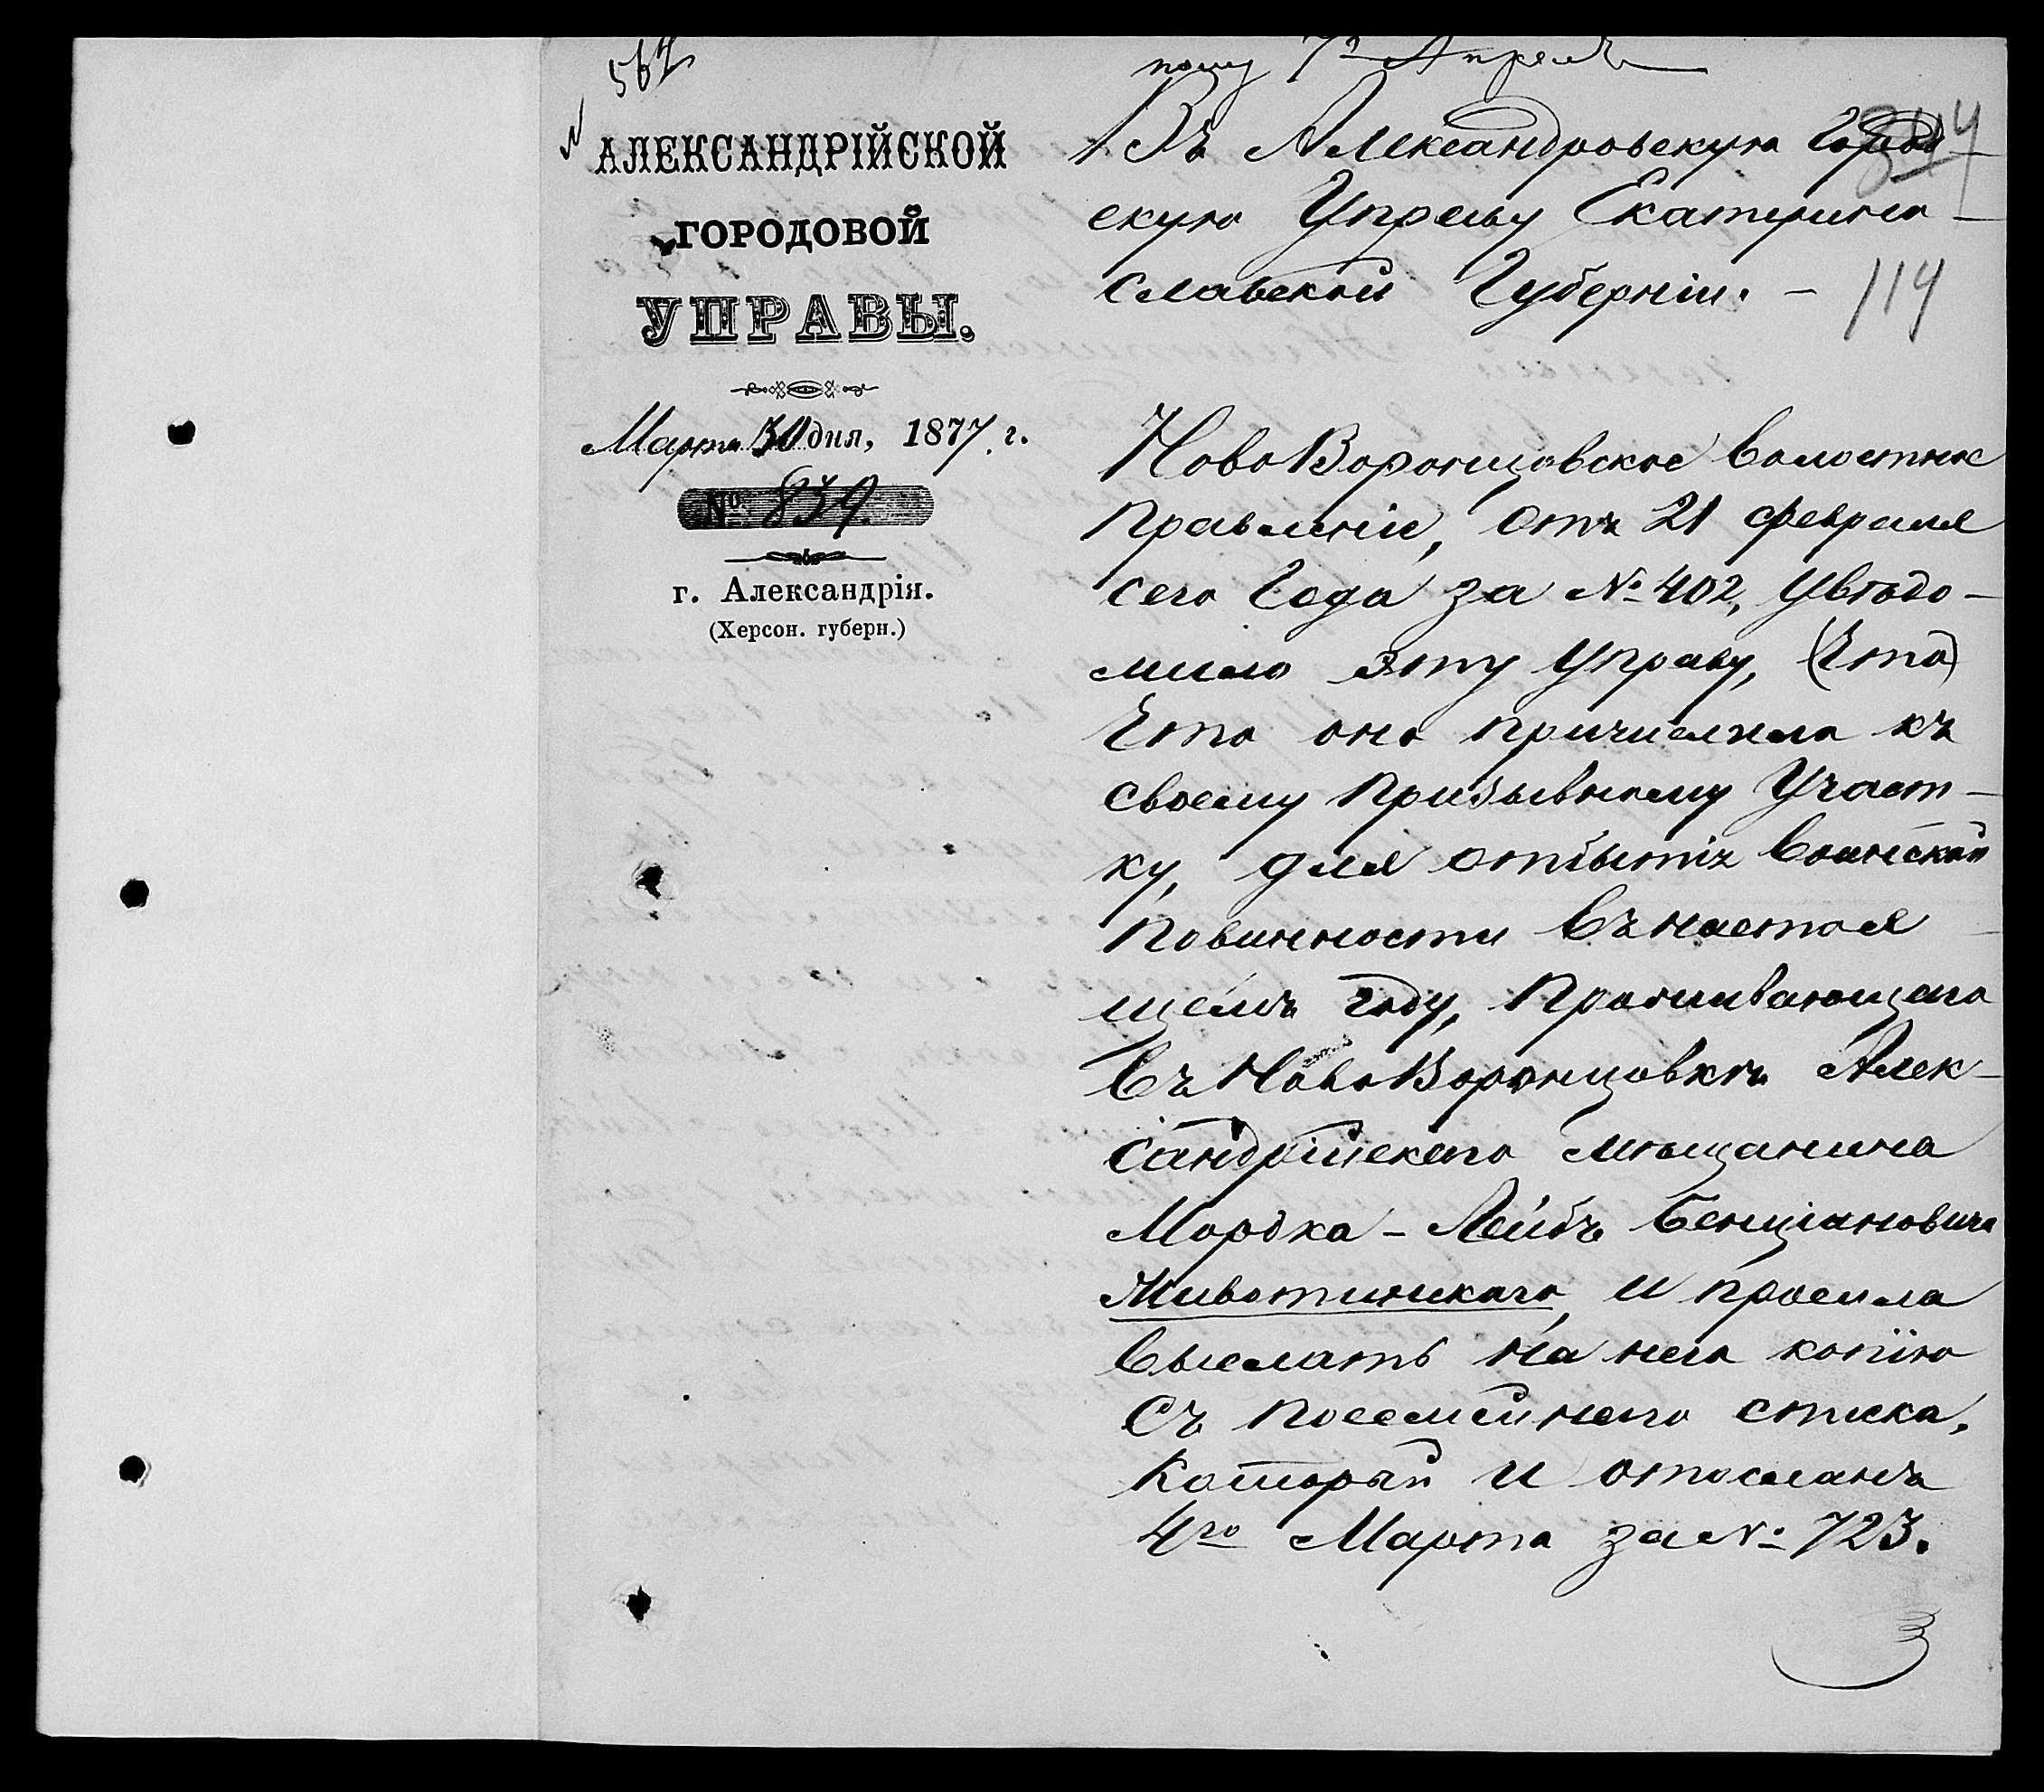 № 564
АЛЕКСАНДРІЙСКОЙ
ГОРОДОВОЙ
УПРАВЫ.
Марта 30 дня, 1877 г.
№ 839.
г. Александрія.
(Херсон. губерн.)
7 Апреля
314
Въ Александровскую Город-
скую Управу Екатерино-
славской Губерніи. -
114
НовоВоронцовское Волостное
Правленіе, отъ 21 февраля
сего Года за № 402, Увѣдо-
мило эту Управу, (Что)
Что оно причислило къ
своему Призывному Участ-
ку, для отбытія Воинской
Повинности Въ настоя
щемъ году, Проживающаго
Въ НовоВоронцовкѣ Алек-
сандрійскаго мѣщанина
Мордка - Лейбъ Бенціановича
Животинскаго, и просило
Выслать на него копію
Съ посемейнаго списка,
Который и отосланъ
4го Марта за № 723.